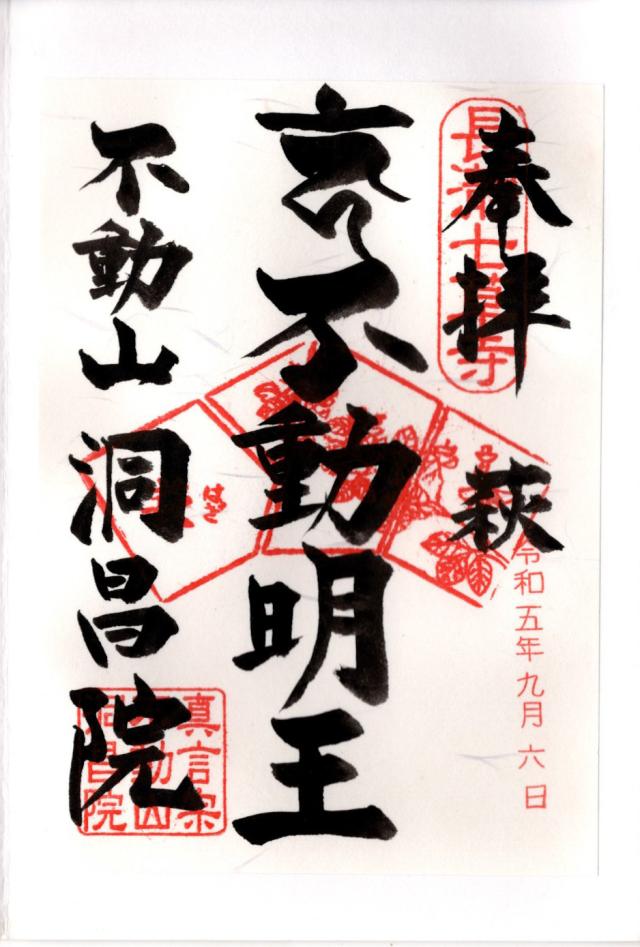 奉拝
長瀞七草寺
萩
令和五年九月六日
不動明王
はぎ
不動山 洞昌院
真言宗
不動山
洞昌院